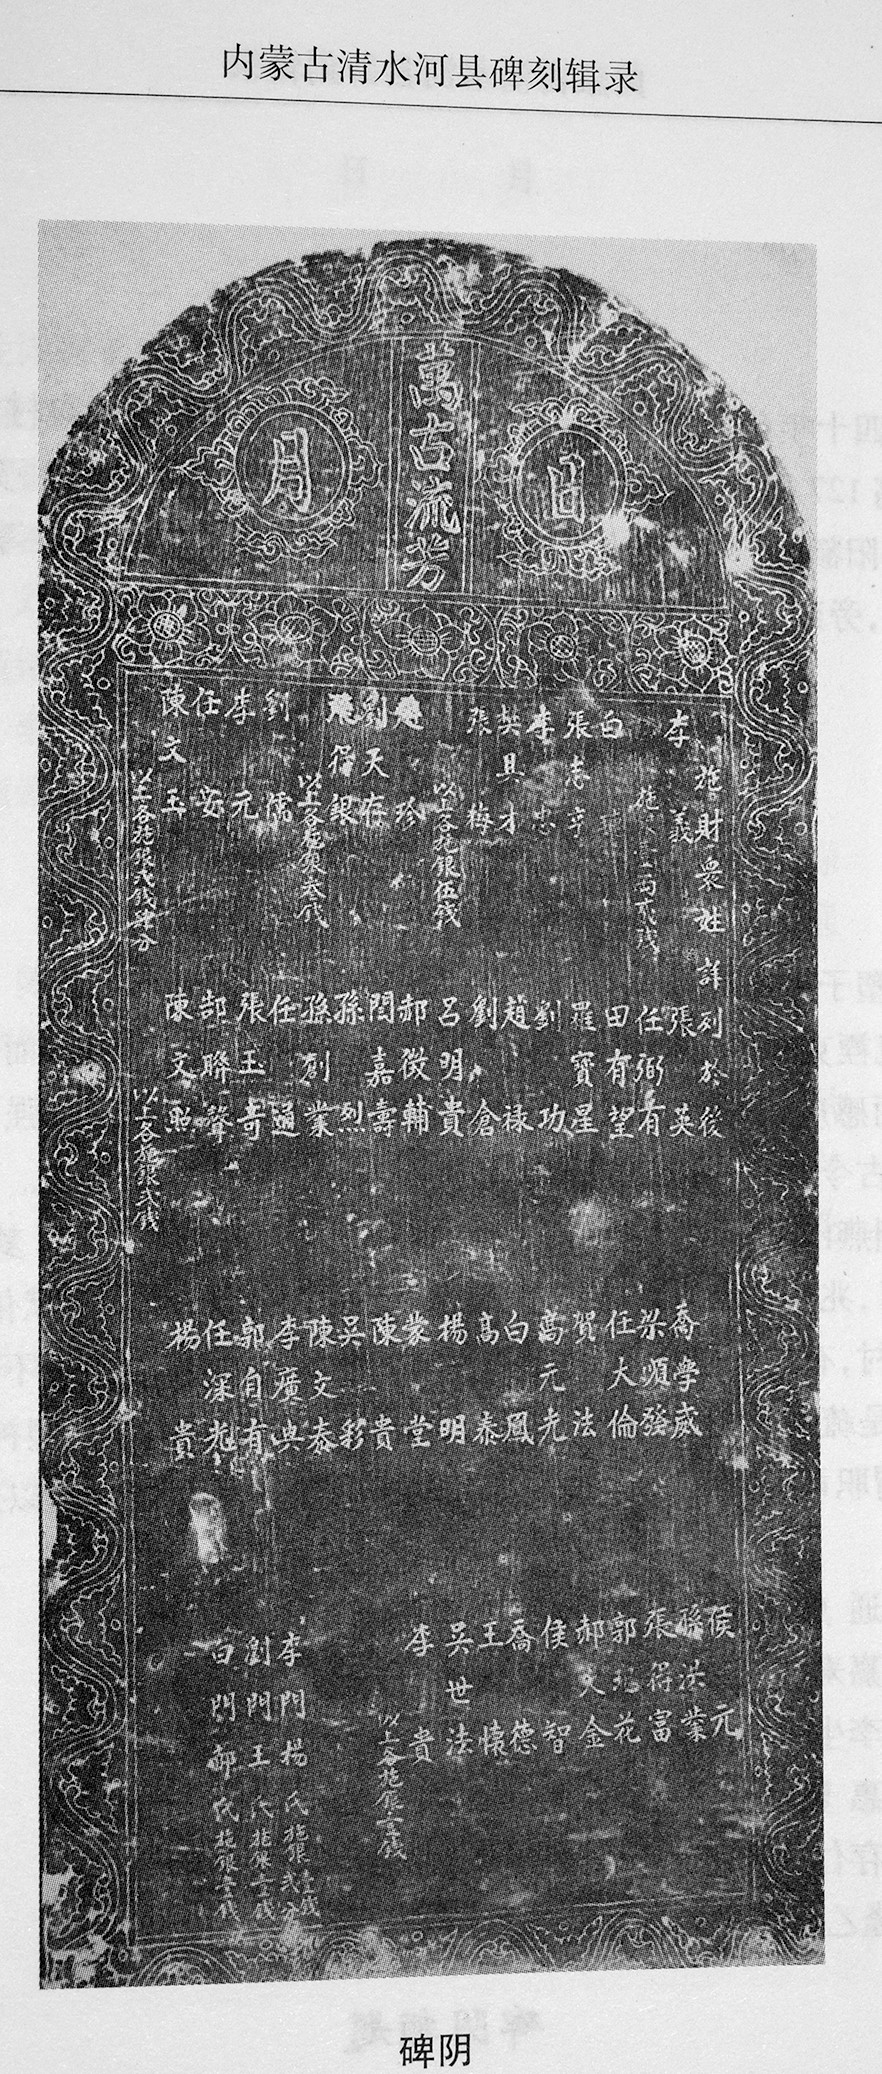 内蒙古清水河县碑刻辑录
萬古流芳
日
月
施財衆姓詳列於後
李義
施 兩貳錢
白
張志
李忠
樊具才
張梅
以上各施銀伍錢
珍
劉天存
得銀
以上各施銀叁錢
劉儒
李元
任安
陳文玉
以上各施銀弍錢 分
張英
任弼有
田有望
羅寳星
劉功
趙禄
劉倉
呂明貴
郝徴輔
閆嘉壽
孫烈
孫創業
任通
張玉奇
郜聯聲
陳文煦
以上各施銀弍錢
喬學威
梁順發
任大倫
賀法
萬元光
白鳳
高泰
楊明
蒙堂
陳貴
吳彩
陳文泰
李廣典
郭自有
任深彪
楊貴
侯元
孫洪業
張得富
郭 花
郝文金
侯智
喬德
王懷
吳世法
李貴
以上各施銀壹錢
李門楊氏施銀弍分
劉門王氏施銀壹錢
白門郝氏施銀壹錢
碑阴